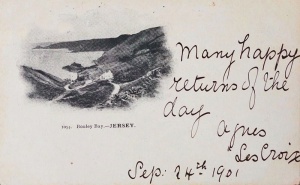 Many happy
returns of the
day
Agnes
Les Croix
Sep: 24th 1901
1093. Bouley Bay.—JERSEY.